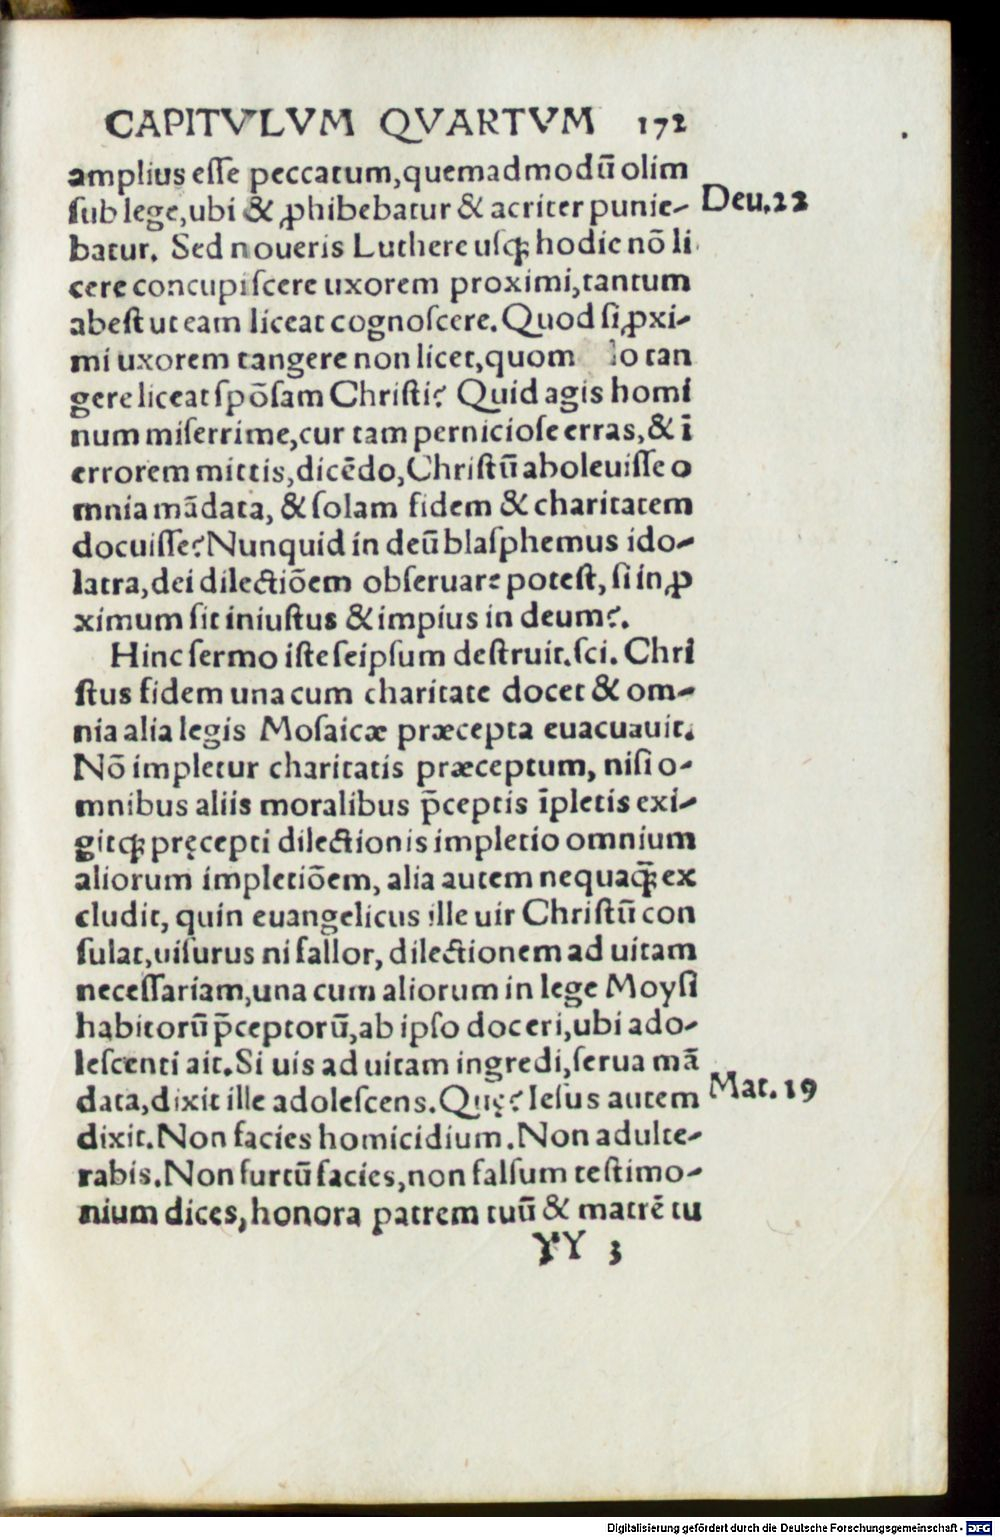 CAPITVLVM QVARTVM 172
amplius esſe peccatum,quemadmodū olim
ſub lege,ubi & ꝓhibebatur & acriter punie- Deu.22
batur. Sed noueris Luthere uſqꝫ hodie nō li
cere concupiſcere uxorem proximi,tantum
abeſt ut eam liceat cognoſcere. Quod ſi ꝓxi-
mi uxorem tangere non licet, tan
gere liceat ſpōſam Chriſti? Quid agis homi
num miſerrime,cur tam pernicioſe erras,& ī
errorem mittis,dicēdo,Chriſtū aboleuiſſe o
mnia mādata, & ſolam fidem & charitatem
docuiſſe? Nunquid in deū blaſphemus ido-
latra,dei dilectiōem obſeruare poteſt, ſi in ꝓ
ximum ſit iniuſtus & impius in deum?.
Hinc ſermo iſte ſeipſum deſtruit.ſci. Chri
ſtus fidem una cum charitate docet & om-
nia alia legis Moſaicæ præcepta euacuauit.
Nō impletur charitatis præceptum, niſi o-
mnibus aliis moralibus p̄ceptis īpletis exi-
gitqꝫ pręcepti dilectionis impletio omnium
aliorum impletiōem, alia autem nequaqꝫ̄ ex
cludit, quin euangelicus ille uir Chriſtū con
ſulat,uiſurus ni fallor, dilectionem ad uitam
neceſſariam,una cum aliorum in lege Moyſi
habitorū p̄ceptorū,ab ipſo doceri,ubi ado-
leſcenti ait.Si uis ad uitam ingredi,ſerua mā
data,dixit ille adoleſcens.Quę? Ieſus autem Mat.19
dixit.Non facies homicidium.Non adulte-
rabis.Non furtū facies,non falſum teſtimo-
nium dices,honora patrem tuū & matrē tu
YY 3
Digitalisierung gefördert durch die Deutsche Forschungsgemeinschaft - DFG